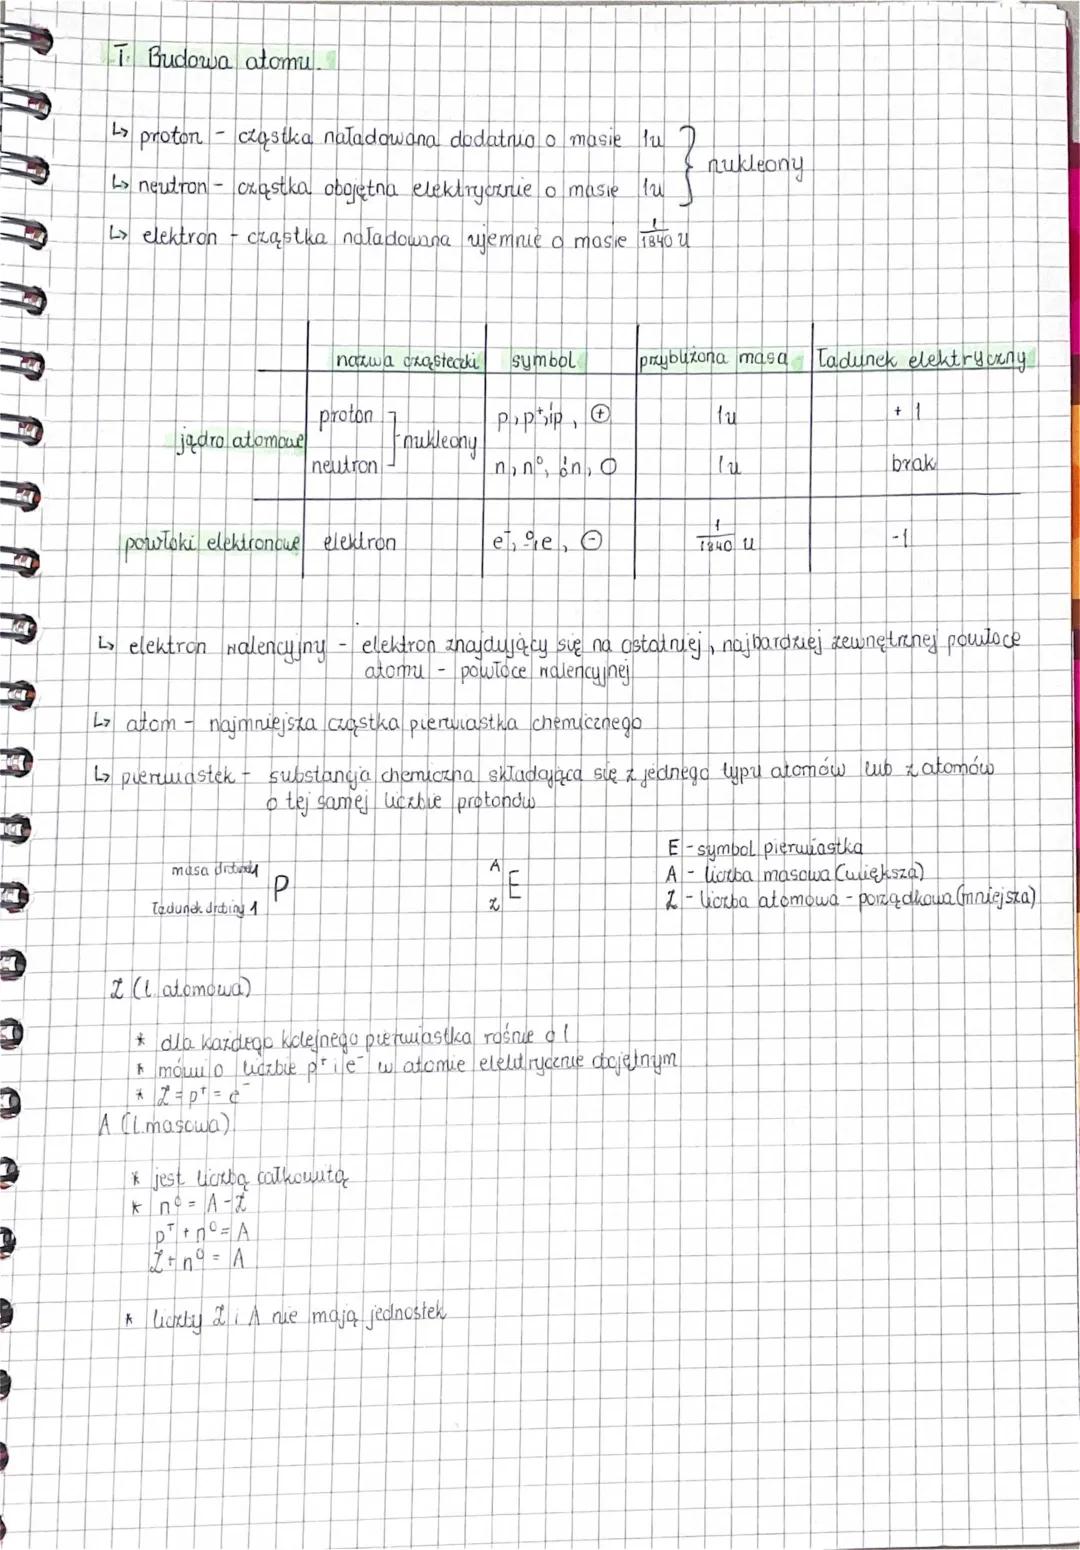 T: Budowa atomu.
↳ proton - cząstka naładowana dodatnio o masie 1u
↳ neutron - cząstka obojętna elektrycznie o masie 1u
} nukleony
↳ elektron - cząstka naładowana ujemnie o masie 1/1840 u
nazwa cząsteczki symbol przybliżona masa ładunek elektryczny
jądro atomowe
proton p, p⁺, ¹₁p, ⊕ 1u +1
} nukleony
neutron n, n⁰, ¹₀n, O 1u brak
powłoki elektronowe elektron e⁻, ⁰₋₁e, ⊖ 1/1840 u -1
↳ elektron walencyjny - elektron znajdujący się na ostatniej, najbardziej zewnętrznej powłoce
atomu - powłoce walencyjnej
↳ atom - najmniejsza cząstka pierwiastka chemicznego
↳ pierwiastek - substancja chemiczna składająca się z jednego typu atomów lub z atomów
o tej samej liczbie protonów
masa drobiny
P
ładunek drobiny 1
A
E
Z
E - symbol pierwiastka
A - liczba masowa (większa)
Z - liczba atomowa - porządkowa (mniejsza)
Z (l. atomowa)
* dla każdego kolejnego pierwiastka rośnie o 1
* mówi o liczbie p⁺ i e⁻ w atomie elektrycznie obojętnym
* Z = p⁺ = e⁻
A (l. masowa)
* jest liczbą całkowitą
* n⁰ = A - Z
p⁺ + n⁰ = A
Z + n⁰ = A
* liczby Z i A nie mają jednostek